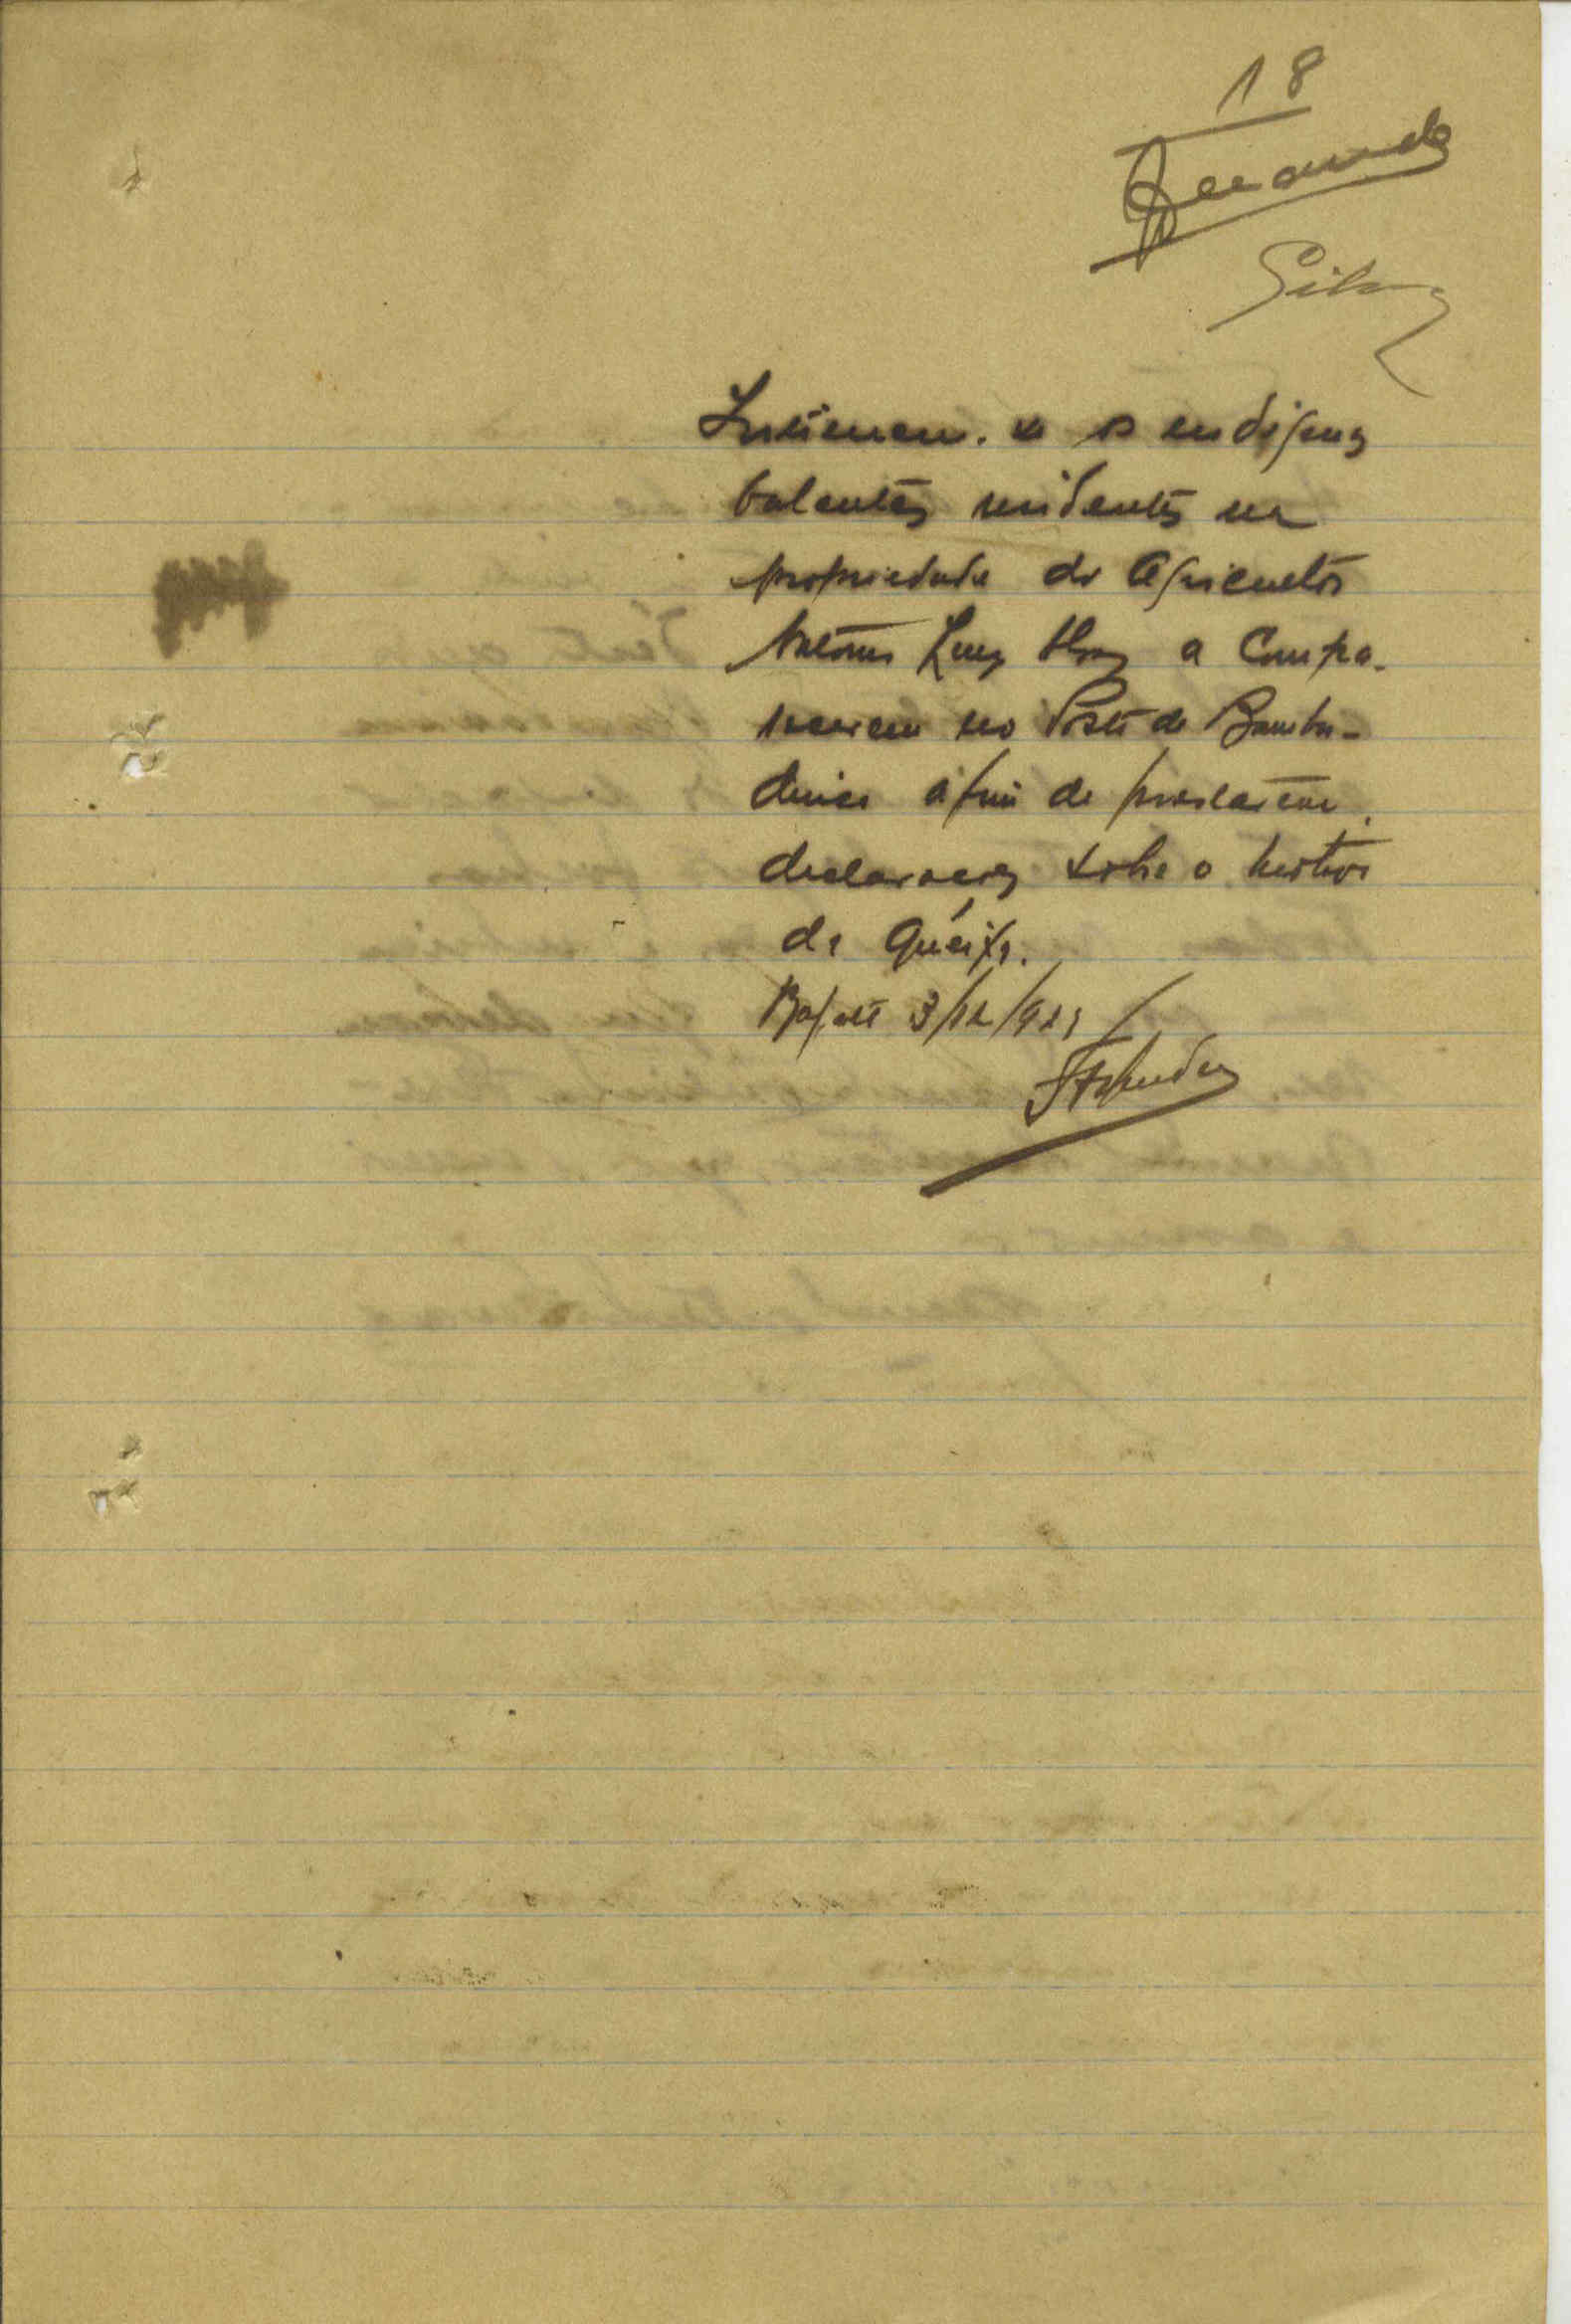 18
Silva
Intimem-se os indigenas
balantas residentes na
propriedade do Agricultor
António Luiz a Compa-
recerem no Posto de Bamba-
dinca afim de prestarem
declarações sobre o motivo
da Queixa.
Bafatá 3/12/929